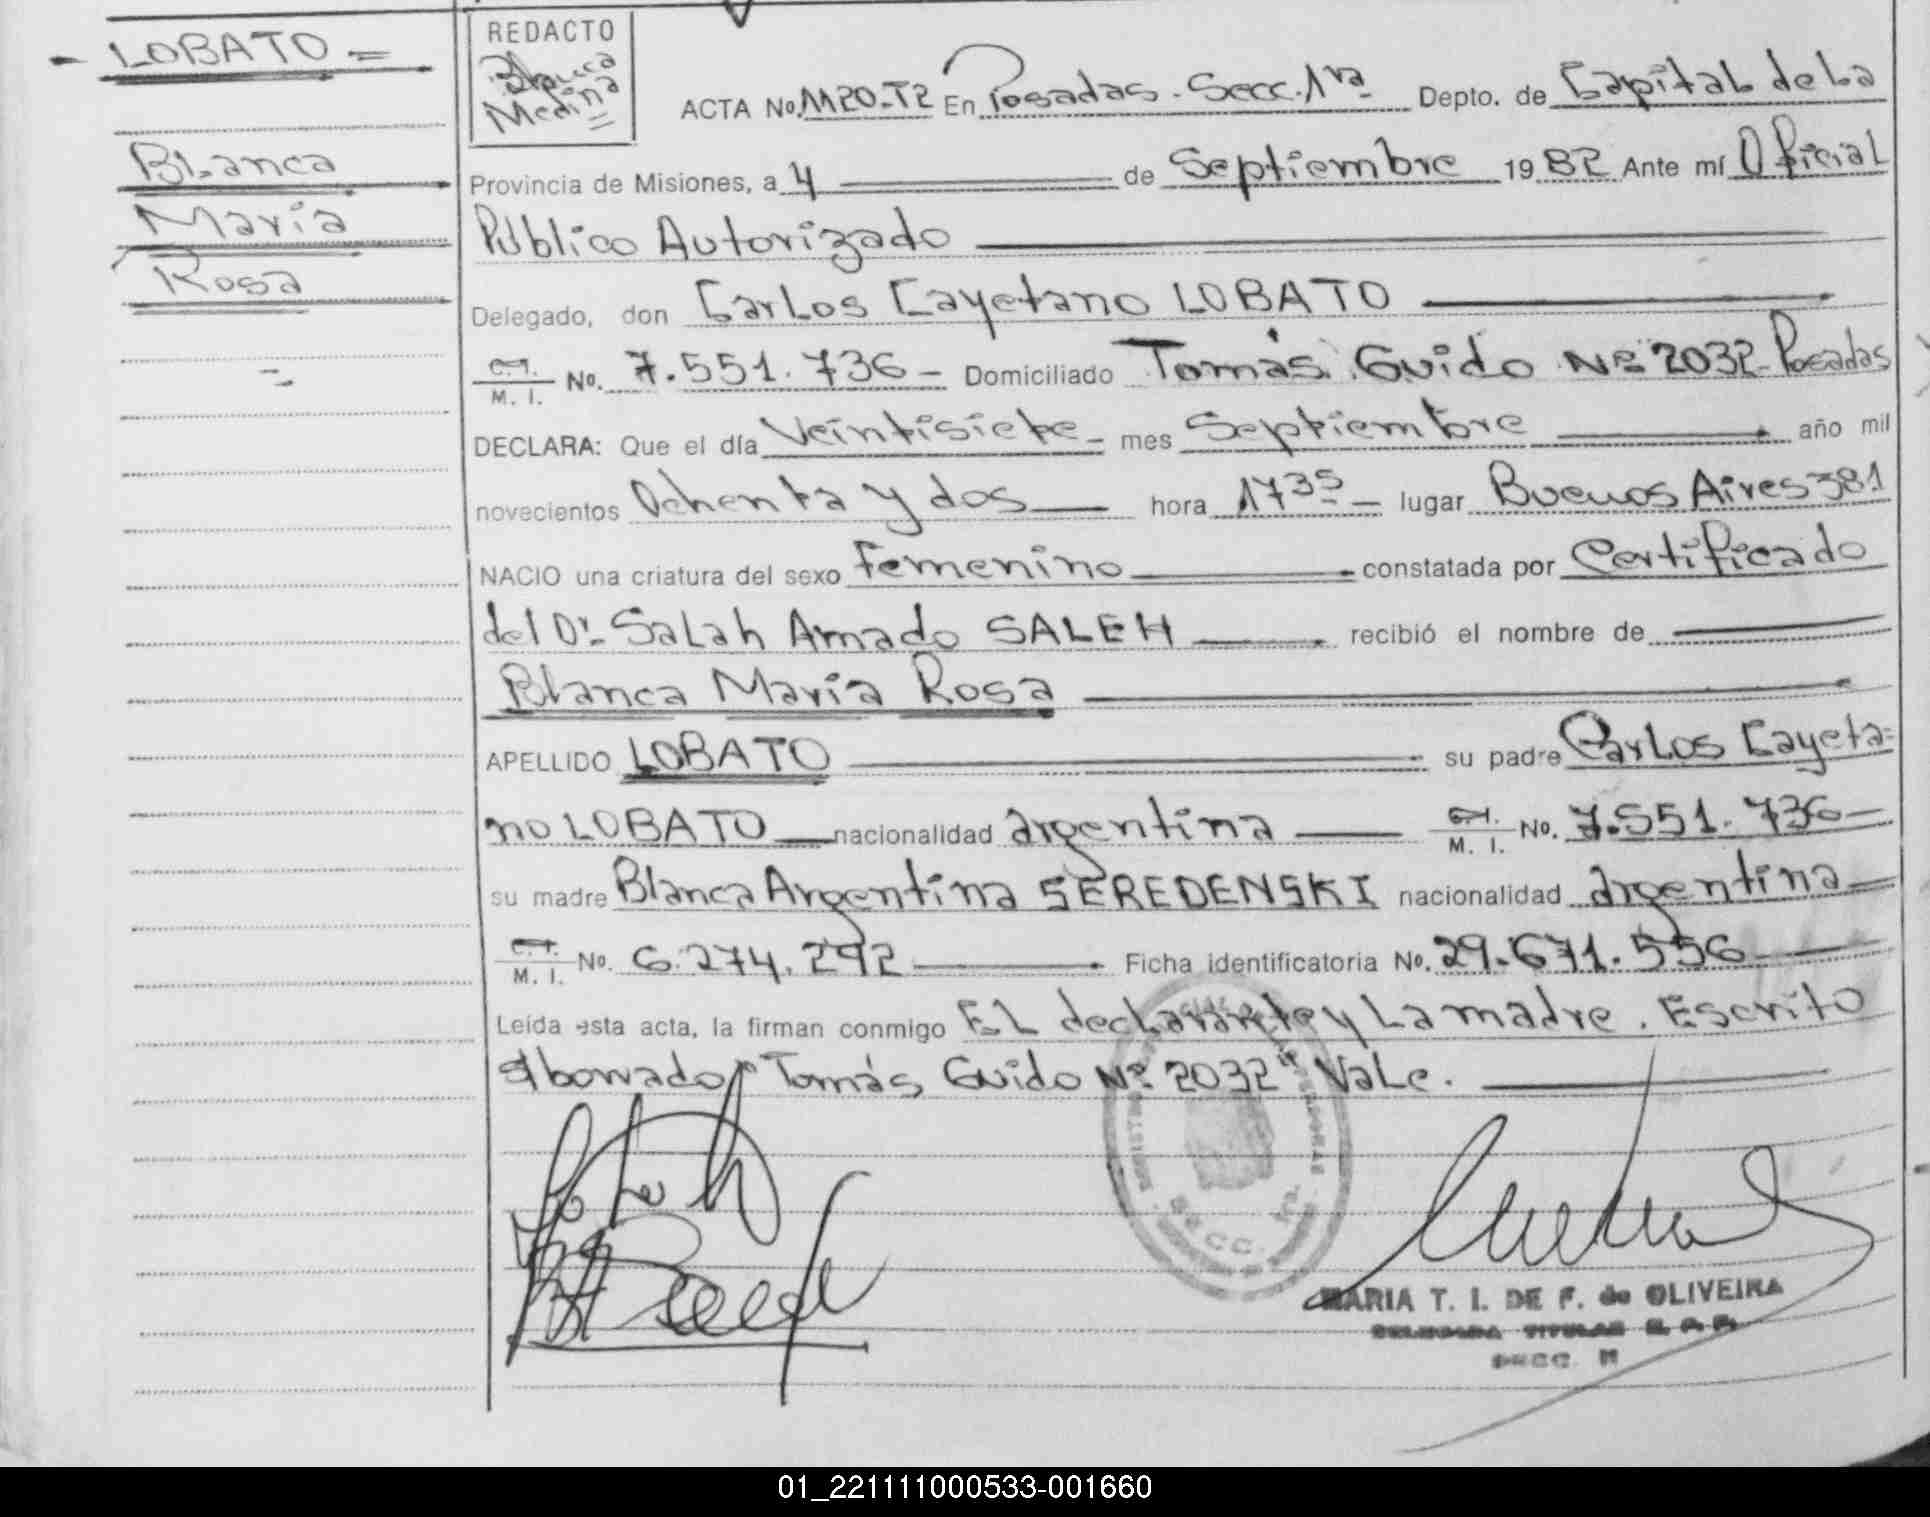 - LOBATO =
Blanca
María
Rosa
REDACTO
Blanca
Medina
ACTA No. 1120-T2 En Posadas. Secc. 1ra Depto. de Capital de La
Provincia de Misiones, a 4 de Septiembre 1982 Ante mí Oficial
Público Autorizado
Delegado, don Carlos Cayetano LOBATO
C.I. / M. I. No. 7.551.736 - Domiciliado Tomás Guido Nº 2032 - Posadas
DECLARA: Que el día Veintisiete - mes Septiembre año mil
novecientos Ochenta y dos hora 17 35 - lugar Buenos Aires 381
NACIO una criatura del sexo Femenino constatada por Certificado
del Dr. Salah Amado SALEH recibió el nombre de
Blanca María Rosa
APELLIDO LOBATO su padre Carlos Cayeta=
no LOBATO nacionalidad argentina C.I. / M. I. No. 7.551.736 -
su madre Blanca Argentina SEREDENSKI nacionalidad argentina
C.I. / M. I. No. 6.274.292 Ficha identificatoria No. 29.671.556
Leída esta acta, la firman conmigo El declarante y La madre. Escrito
s/borrado: "Tomás Guido Nº 2032" Vale.
SECC. 1ra.
MARIA T. I. DE F. de OLIVEIRA
DELEGADA TITULAR R. P. P.
SECC.
01_221111000533-001660